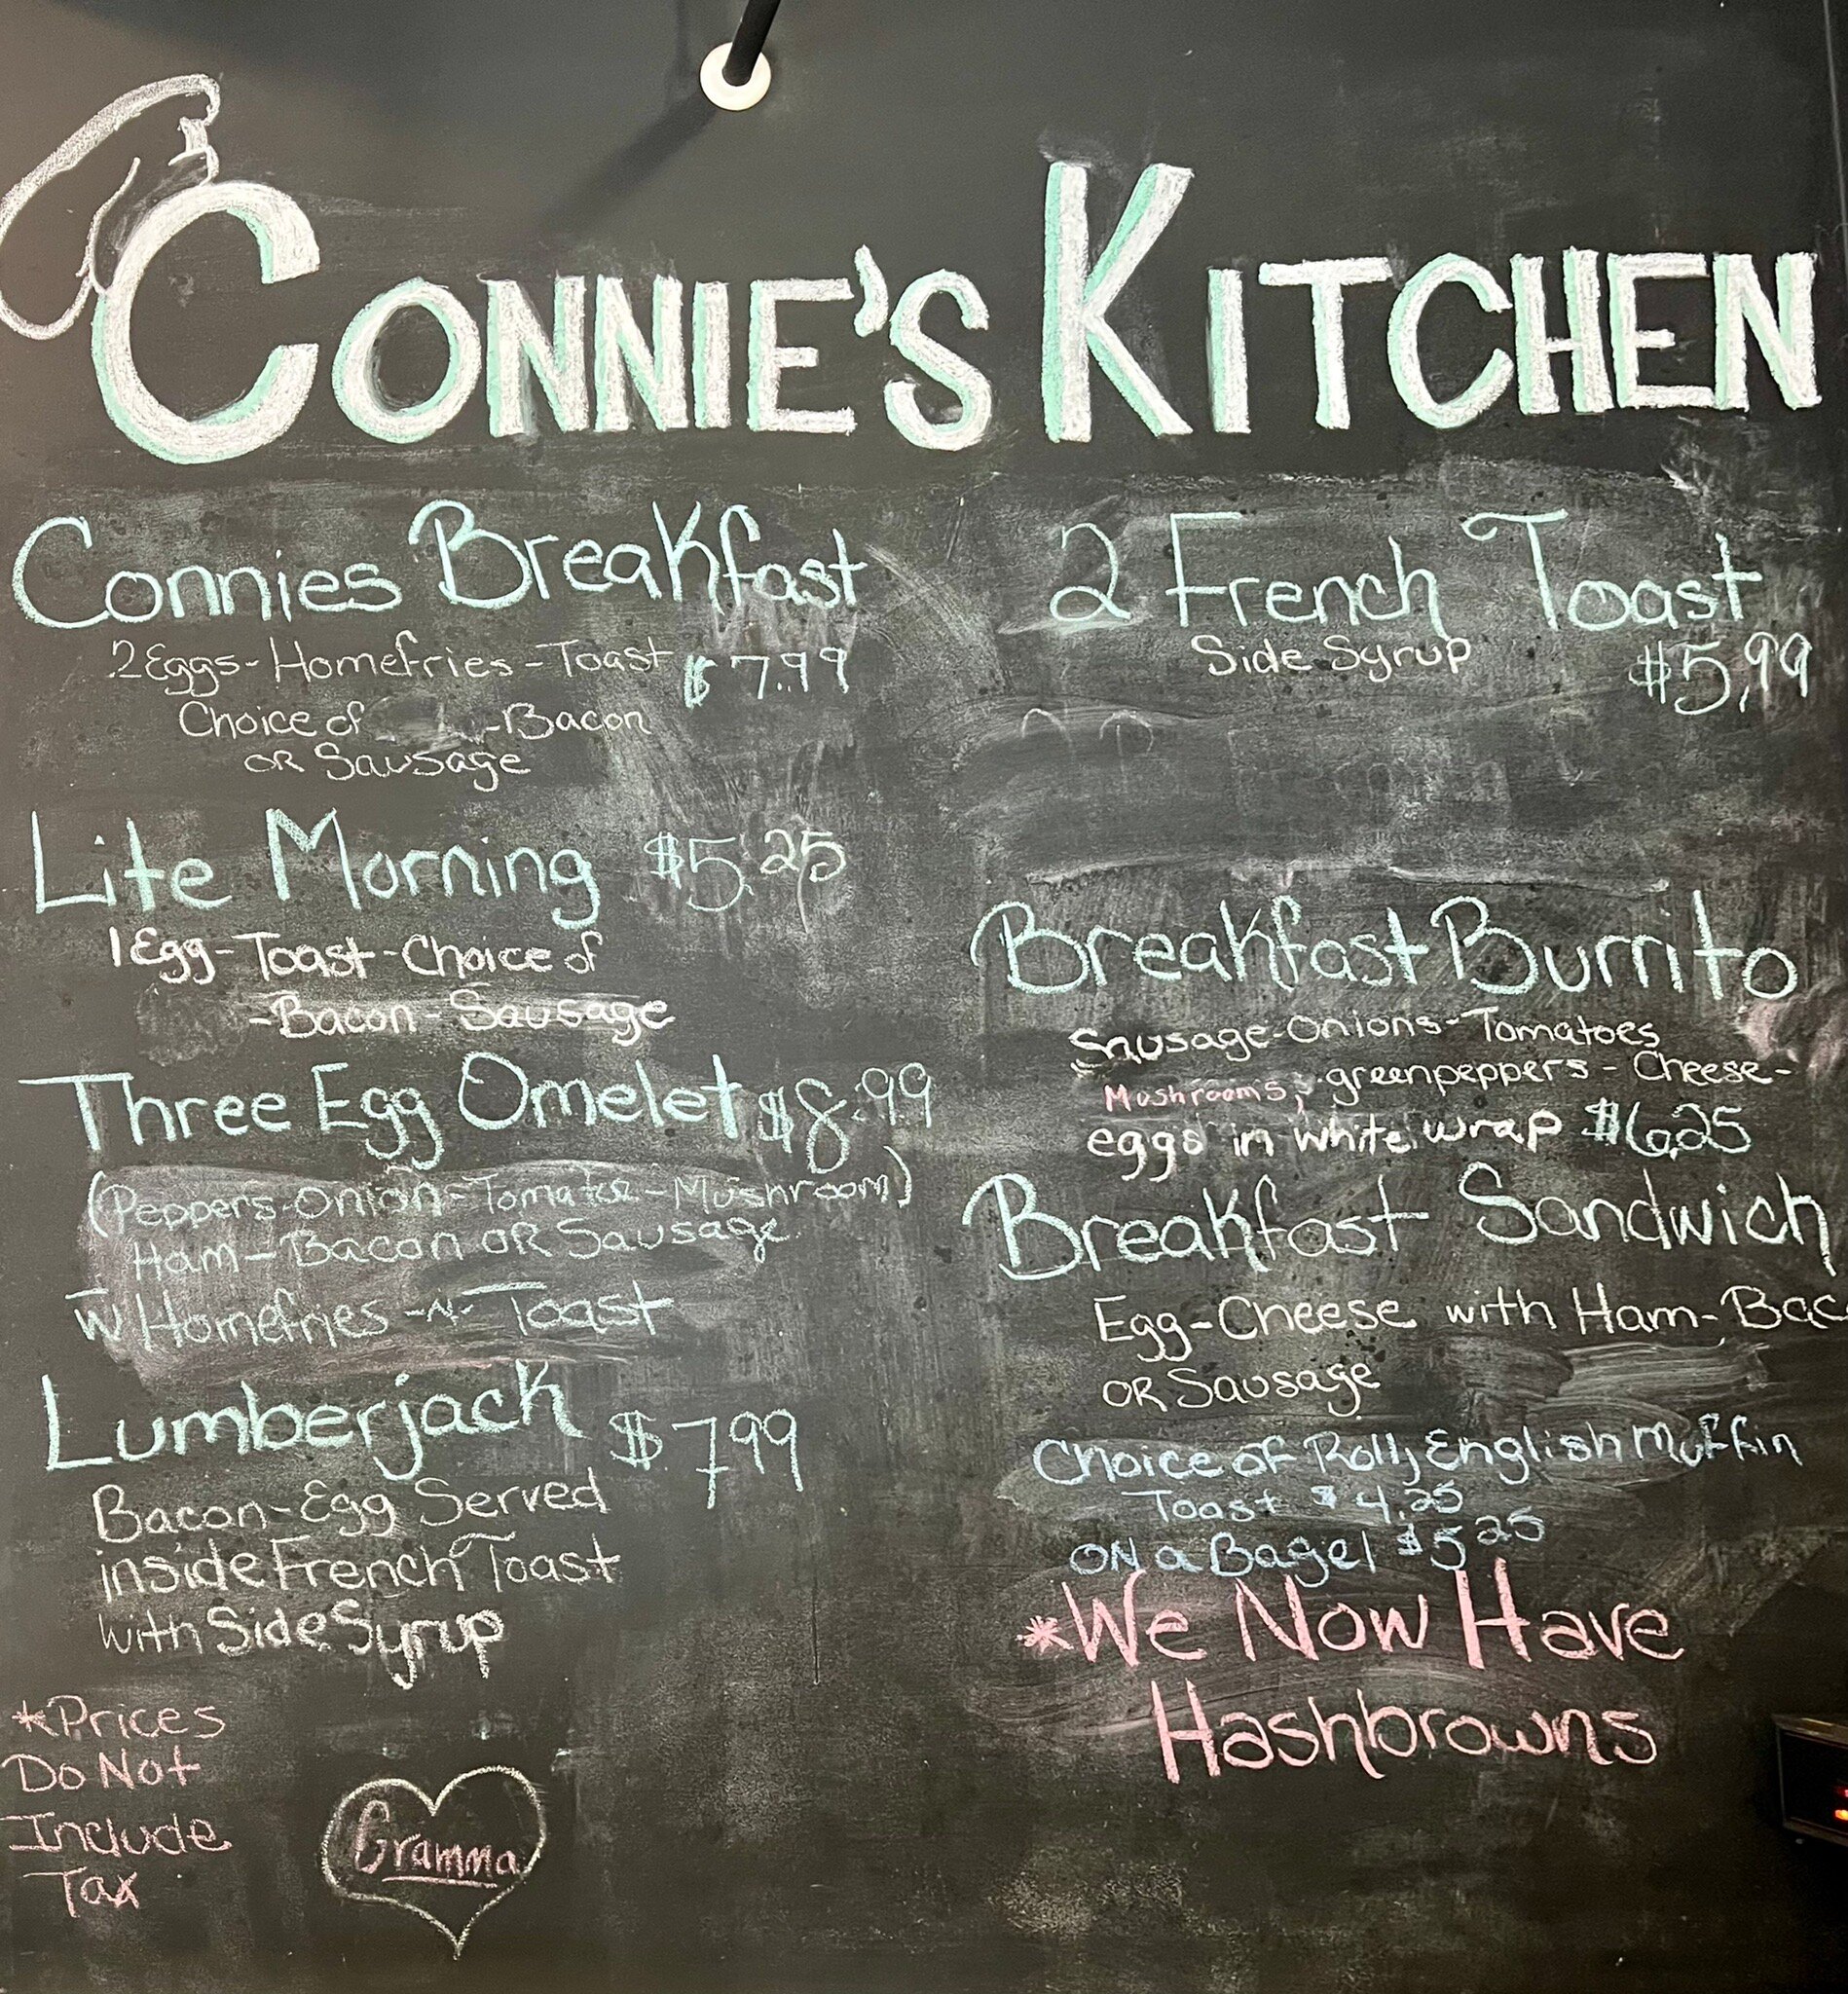 CONNIE'S KITCHEN
Connies Breakfast
2 Eggs - Homefries - Toast $7.99
Choice of -Bacon
OR Sausage
Lite Morning $5.25
1 Egg - Toast - Choice of
-Bacon - Sausage
Three Egg Omelet $8.99
(Peppers-Onion-Tomato-Mushroom)
Ham-Bacon OR Sausage
W/Homefries -N- Toast
Lumberjack $7.99
Bacon-Egg Served
inside French Toast
with Side Syrup
*Prices
Do Not
Include
Tax
Gramma
2 French Toast
Side Syrup $5.99
Breakfast Burrito
Sausage-Onions-Tomatoes
Mushrooms, greenpeppers - Cheese-
eggs in white wrap $6.25
Breakfast Sandwich
Egg-Cheese with Ham-Bac
OR Sausage
Choice of Roll, English Muffin
Toast $4.25
ON a Bagel $5.25
*We Now Have
Hashbrowns